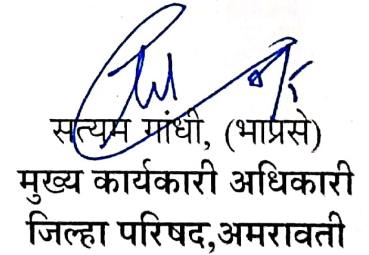 सत्यम गांधी, (भाप्रसे)
मुख्य कार्यकारी अधिकारी
जिल्हा परिषद,अमरावती